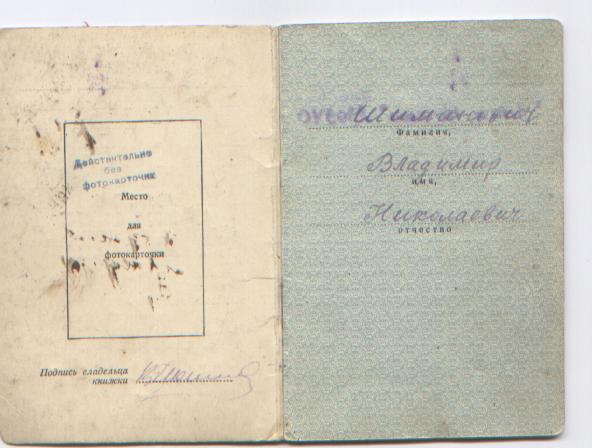 Действительно
без
фотокарточки
Место
для
фотокарточки
Подпись владельца
книжки
Шиманович
Фамилия,
Владимир
имя,
Николаевич
отчество